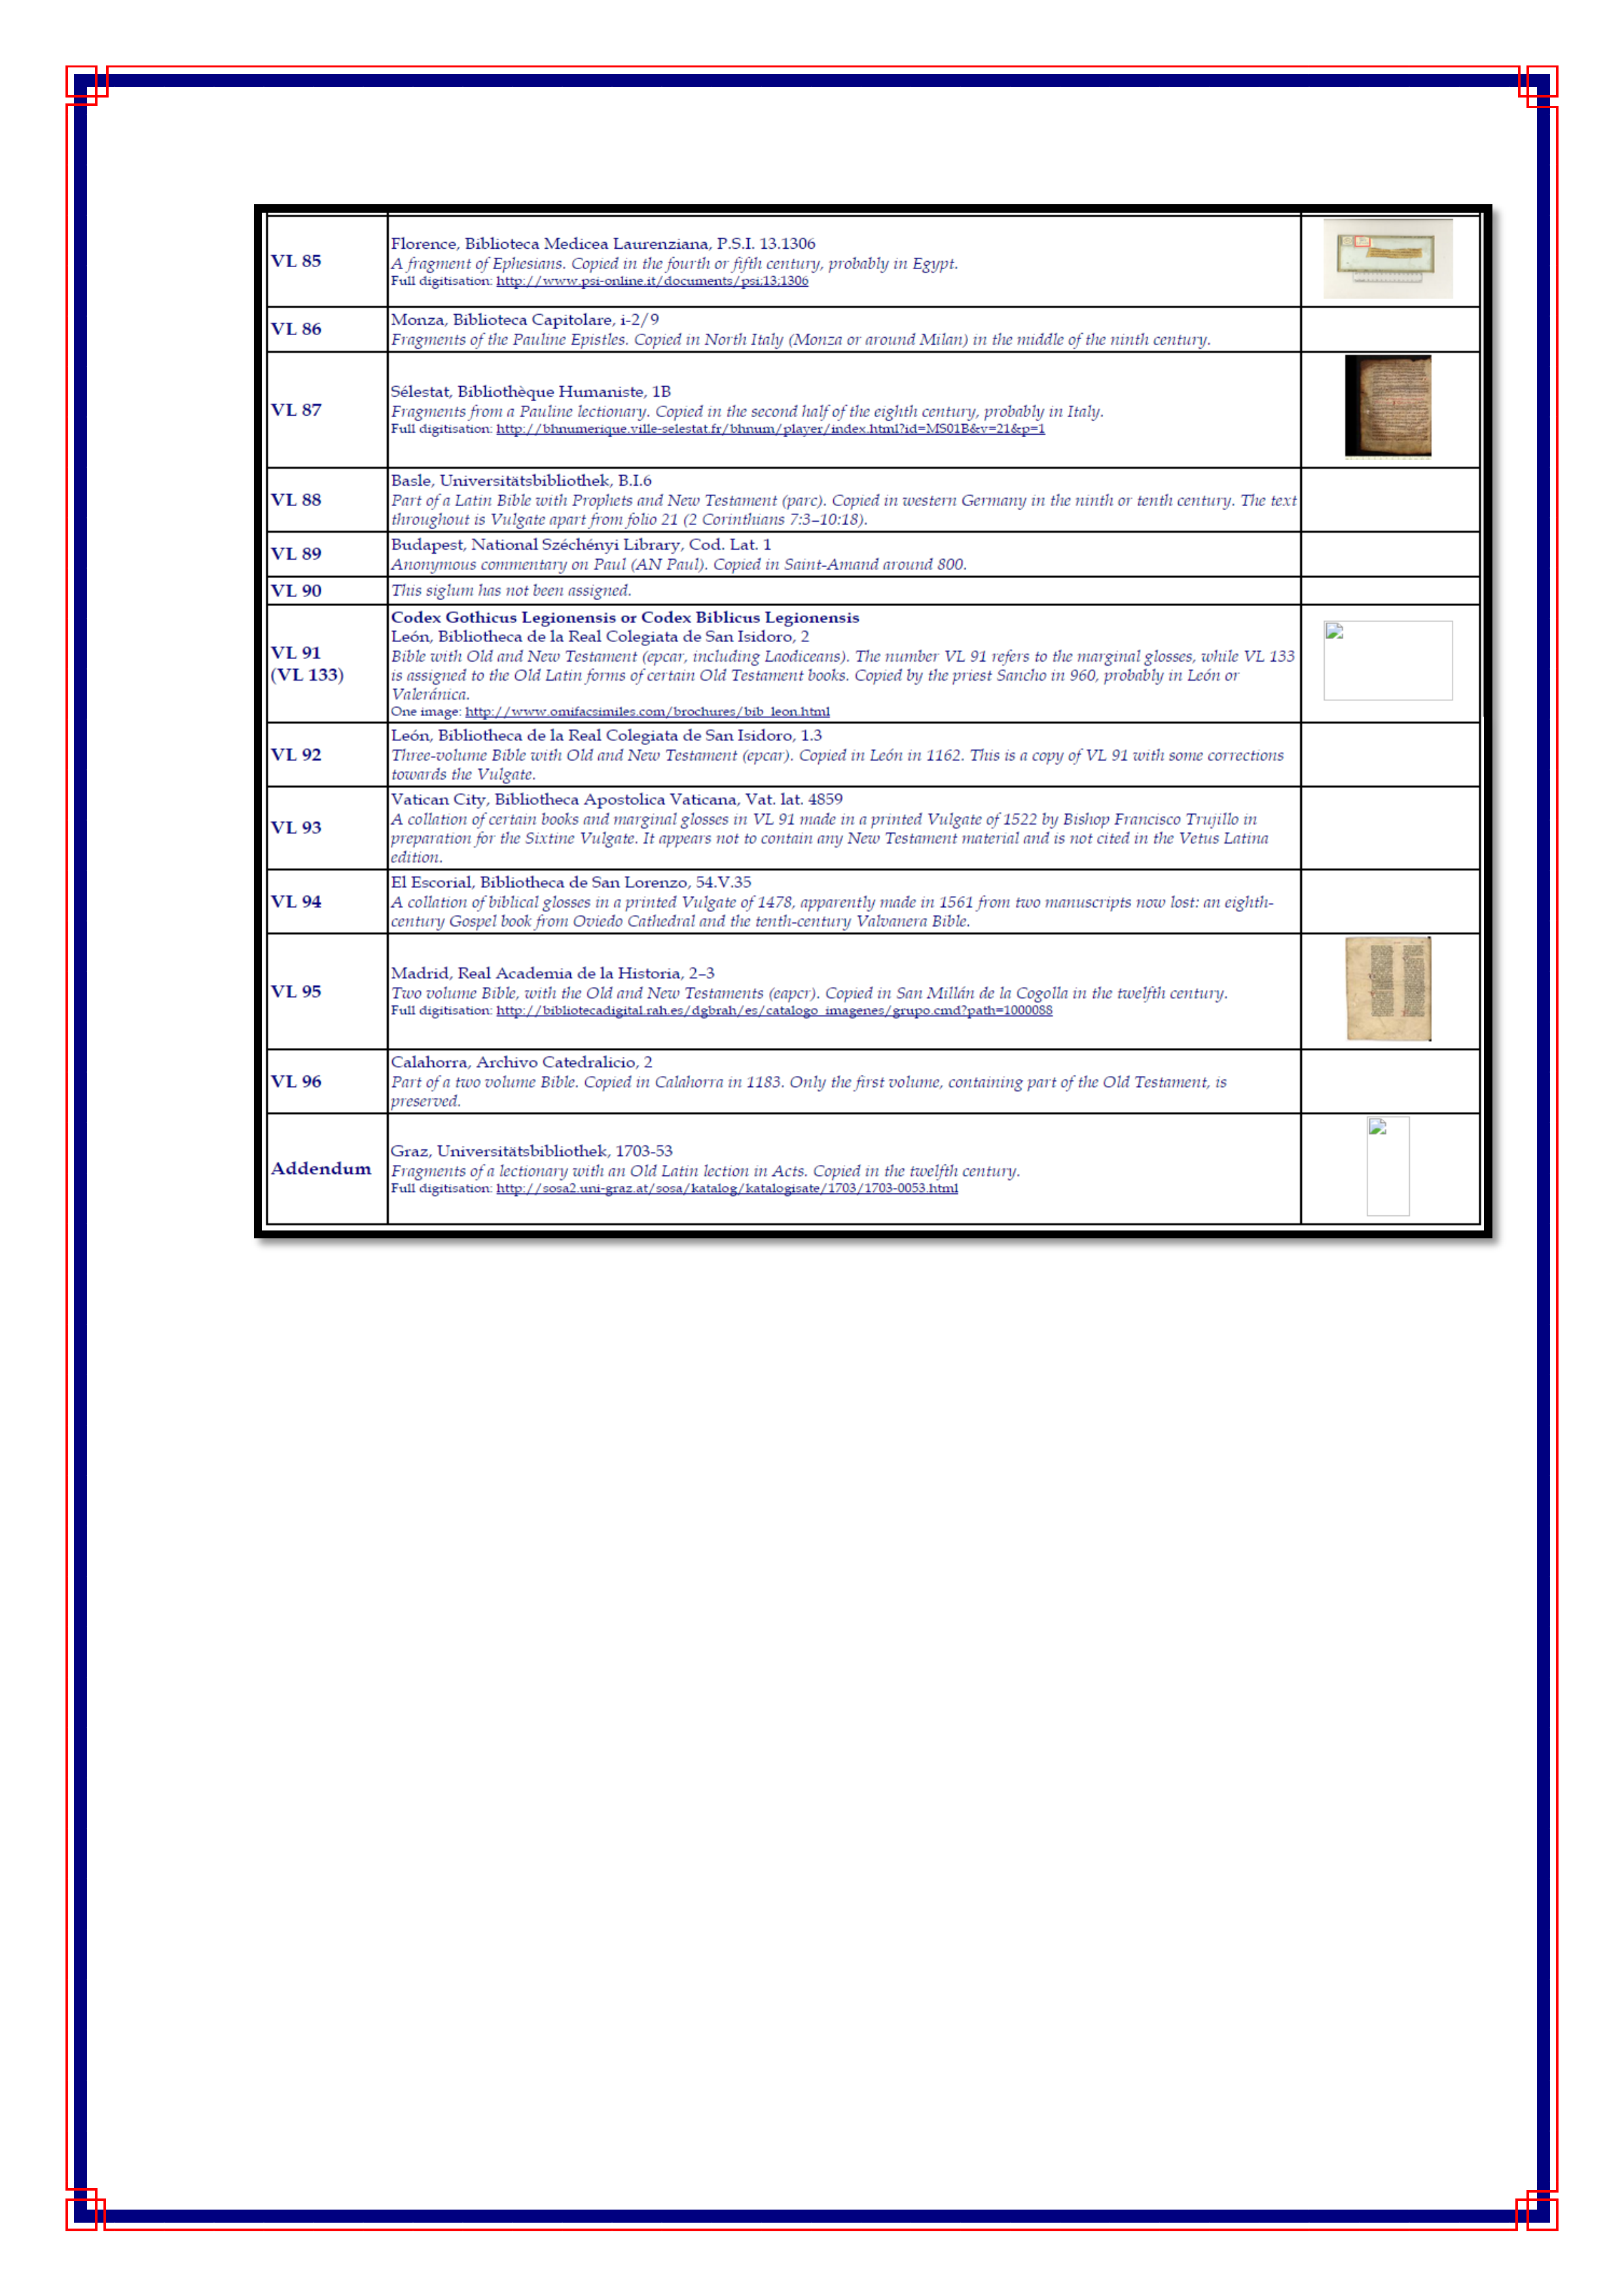 VL 85
Florence, Biblioteca Medicea Laurenziana, P.S.I. 13.1306
A fragment of Ephesians. Copied in the fourth or fifth century, probably in Egypt.
Full digitisation: http://www.psi-online.it/documents/psi;13;1306
VL 86
Monza, Biblioteca Capitolare, i-2/9
Fragments of the Pauline Epistles. Copied in North Italy (Monza or around Milan) in the middle of the ninth century.
VL 87
Sélestat, Bibliothèque Humaniste, 1B
Fragments from a Pauline lectionary. Copied in the second half of the eighth century, probably in Italy.
Full digitisation: http://bhnumerique.ville-selestat.fr/bhnum/player/index.html?id=MS01B&v=21&p=1
VL 88
Basle, Universitätsbibliothek, B.I.6
Part of a Latin Bible with Prophets and New Testament (parc). Copied in western Germany in the ninth or tenth century. The text
throughout is Vulgate apart from folio 21 (2 Corinthians 7:3–10:18).
VL 89
Budapest, National Széchényi Library, Cod. Lat. 1
Anonymous commentary on Paul (AN Paul). Copied in Saint-Amand around 800.
VL 90
This siglum has not been assigned.
VL 91
(VL 133)
Codex Gothicus Legionensis or Codex Biblicus Legionensis
León, Bibliotheca de la Real Colegiata de San Isidoro, 2
Bible with Old and New Testament (epcar, including Laodiceans). The number VL 91 refers to the marginal glosses, while VL 133
is assigned to the Old Latin forms of certain Old Testament books. Copied by the priest Sancho in 960, probably in León or
Valeránica.
One image: http://www.omifacsimiles.com/brochures/bib_leon.html
VL 92
León, Bibliotheca de la Real Colegiata de San Isidoro, 1.3
Three-volume Bible with Old and New Testament (epcar). Copied in León in 1162. This is a copy of VL 91 with some corrections
towards the Vulgate.
VL 93
Vatican City, Bibliotheca Apostolica Vaticana, Vat. lat. 4859
A collation of certain books and marginal glosses in VL 91 made in a printed Vulgate of 1522 by Bishop Francisco Trujillo in
preparation for the Sixtine Vulgate. It appears not to contain any New Testament material and is not cited in the Vetus Latina
edition.
VL 94
El Escorial, Bibliotheca de San Lorenzo, 54.V.35
A collation of biblical glosses in a printed Vulgate of 1478, apparently made in 1561 from two manuscripts now lost: an eighth-
century Gospel book from Oviedo Cathedral and the tenth-century Valvanera Bible.
VL 95
Madrid, Real Academia de la Historia, 2–3
Two volume Bible, with the Old and New Testaments (eapcr). Copied in San Millán de la Cogolla in the twelfth century.
Full digitisation: http://bibliotecadigital.rah.es/dgbrah/es/catalogo_imagenes/grupo.cmd?path=1000088
VL 96
Calahorra, Archivo Catedralicio, 2
Part of a two volume Bible. Copied in Calahorra in 1183. Only the first volume, containing part of the Old Testament, is
preserved.
Addendum
Graz, Universitätsbibliothek, 1703-53
Fragments of a lectionary with an Old Latin lection in Acts. Copied in the twelfth century.
Full digitisation: http://sosa2.uni-graz.at/sosa/katalog/katalogisate/1703/1703-0053.html